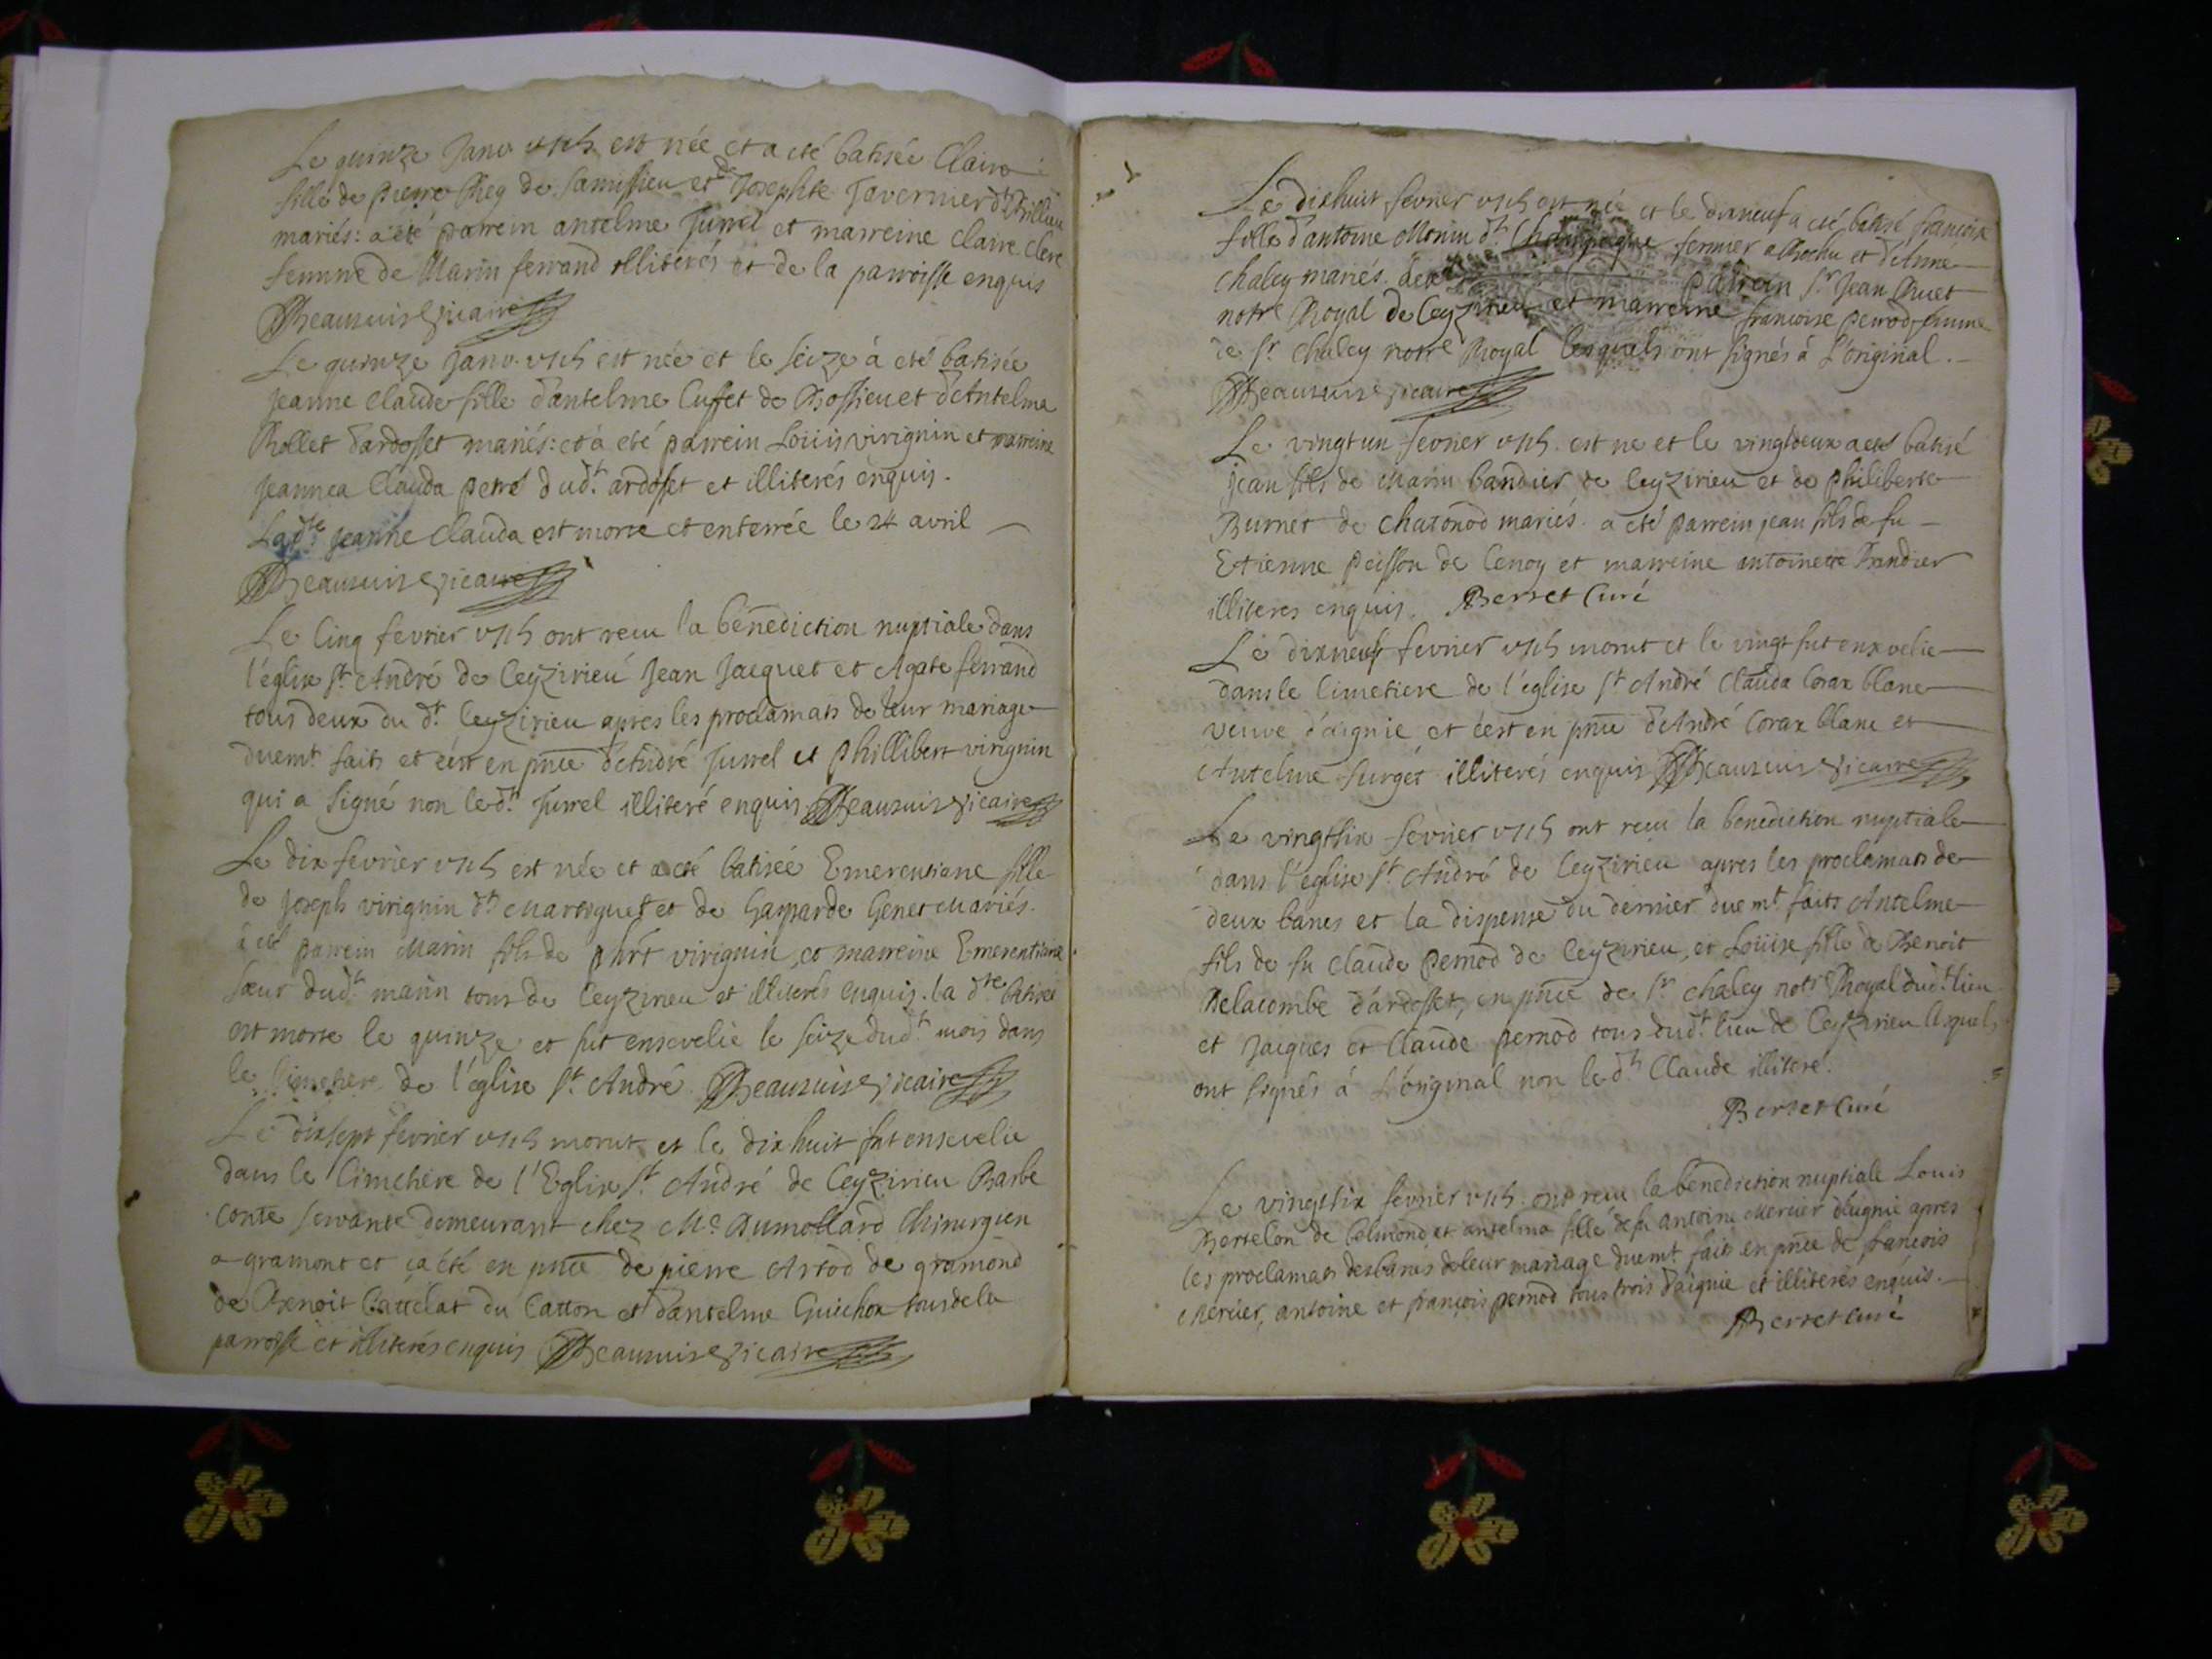 Le quinze Janv. 1715 est née et a eté batisée Claire
fille de Pierre Rey de Samissieu et de Josephte Tavernier
mariés: a eté parrein antelme Jurrel et marreine Claire Clerc
femme de Marin ferrand illiterés et de la parroisse enquis
Beausuis vicaire
Le quinze Janv. 1715 est née et le seize à eté batisée
Jeanne Claude fille d'antelme Cusset de Rossieu et d'Antelma
Rollet d'ardosset mariés: et a eté parrein Loüis virignin et marreine
Jeannea Clauda petre dudt. ardosset et illiterés enquis.
Ladte Jeanne Clauda est morte et enterrée le 24 avril
Beausuis vicaire
Le Cinq fevrier 1715 ont receu la benediction nuptiale dans
l'eglise St. André de Ceyzirieu Jean Jacquet et Agate ferrand
tous deux du dt. Ceyzirieu apres les proclamats de leur mariage
duemt. faits et c'est en pnce d'André Jurrel et Phillibert virignin
qui a signé non ledt. Jurrel illiteré enquis Beausuis vicaire
Le dix fevrier 1715 est née et a eté batisée Emerentiane fille
de Joseph virignin dt. Maroguet et de Gasparde Genet Mariés.
à eté parrein Marin fils de phirt virignin, et marreine Emerentiane
sœur dudt. marin tous de Ceyzirieu et illiterés enquis. la dte. batisée
est morte le quinze et fut ensevelie le seize dudt. mois dans
le Cimetiere de l'eglise St. André. Beausuis vicaire
Le dixsept fevrier 1715 morut et le dixhuit fut ensevelie
dans le Cimetiere de l'Eglise St. André de Ceyzirieu Barbe
Conte servante demeurant chez Me. Dumollard Chirurgien
a gramont et ça été en pnce de pierre Artod de gramond
de Benoit Cattelat du Catton et d'antelme Guichon tous de la
parroisse et illiterés enquis Beausuis vicaire
Le dixhuit fevrier 1715 est née et le dixneuf a eté batisé francoise
fille d'antoine Monin dt. Champagne fermier a Rochu et d'Aimé
Chaley mariés. parrein Sr. Jean Ruet
notre Royal de Ceyzirieu et marreine francoise pernod femme
de Sr. Chaley notre Royal lesquels ont signés à l'original.
Beausuis vicaire
Le vingt un fevrier 1715. est ne et le vingtdeux a eté batisé
jean fils de Marin bandier de Ceyzirieu et de philiberte
Burnet de Chatonod mariés. a eté parrein jean fils de fu
Etienne peisson de Cenoy et marreine antoinette
illiteres enquis. Berret Curé
Le dixneuf fevrier 1715 morut et le vingt fut ensevelie
dans le Cimetiere de l'eglise St. André Clauda Corax blanc
veuve d'aignié et c'est en pnce d'André Corax blanc et
Antelme Surget illiterés enquis Beausuis vicaire
Le vingtsix fevrier 1715 ont receu la benediction nuptiale
dans l'eglise St. André de Ceyzirieu apres les proclamats de
deux bancs et la dispense du dernier duemt. faits Antelme
fils de fu Claude pernod de Ceyzirieu, et Loüise fille de Benoit
Delacombe d'ardosset, en pnce de Sr. Chaley notre Royal dudt. lieu
et Jacques et Claude pernod tous dudt. lieu de Ceyzirieu lesquels
ont signés à L'original non ledt. Claude illiteré.
Berret Curé
Le vingtsix fevrier 1715. ont receu la benediction nuptiale Louis
Bertelon de Talmond et antelma fille de fu Antoine Mercier d'aignie apres
les proclamats des bancs de leur mariage duemt. faits en pnce de francois
Mercier, antoine et francois pernod tous trois d'aignie et illiterés enquis.
Berret Curé